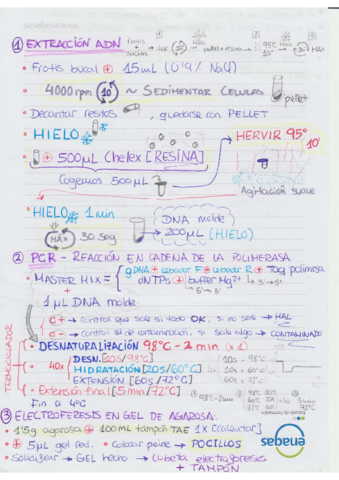 ① EXTRACCIÓN ADN
• Frotis bucal ⊕ 15mL (0'9% NaCl)
• 4000 rpm 10' ~ SEDIMENTAR CELULAS
pellet
• Decantar restos, quedarse con PELLET
• HIELO
HERVIR 95º
10'
• ⊕ 500µL Chelex [RESINA]
Cogemos 500µL
Agitación suave
• HIELO 1 min
MAX 30 seg
DNA molde
200µL (HIELO)
② PCR - REACCIÓN EN CADENA DE LA POLIMERASA
• MASTER MIX = gDNA + cebador F + cebador R + Taq polimerasa
dNTPs + buffer Mg²⁺
+
1 µL DNA molde
C+ → Control que sale si todo OK, si no sale → MAL
C- → Control si de contaminación, si sale algo → CONTAMINADO
TERMOCICLADOR
• DESNATURALIZACIÓN 98ºC - 2 min (x1)
40x
DESN. [20s/98ºC]
HIDRATACIÓN [20s/60ºC]
EXTENSIÓN [60s/72ºC]
• Extensión final [5 min/72ºC]
Fin a 4ºC
③ ELECTROFORESIS EN GEL DE AGAROSA:
• 1'5g agarosa ⊕ 100 mL tampón TAE 1x (calentar)
• ⊕ 5µL gel red. • Colocar peine → POCILLOS
• Solidificar → GEL hecho → Cubeta electroforesis
+ TAMPÓN
enagas